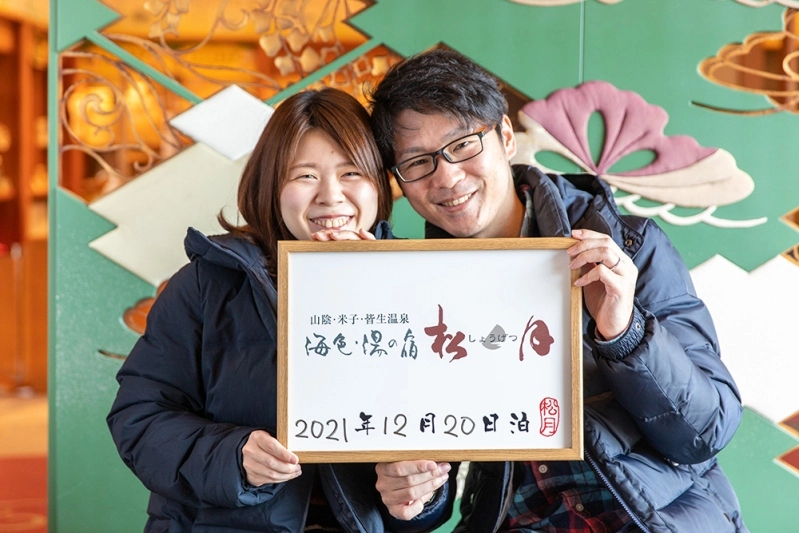 山陰・米子・皆生温泉
海色・湯の宿 松月
しょうげつ
2021年12月20日泊
松月